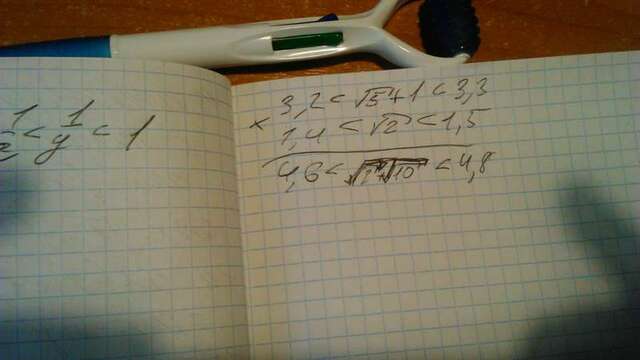 3,2 < √5+1 < 3,3
× 1,4 < √2 < 1,5
4,6 < < 4,8
1 < 1/y < 1